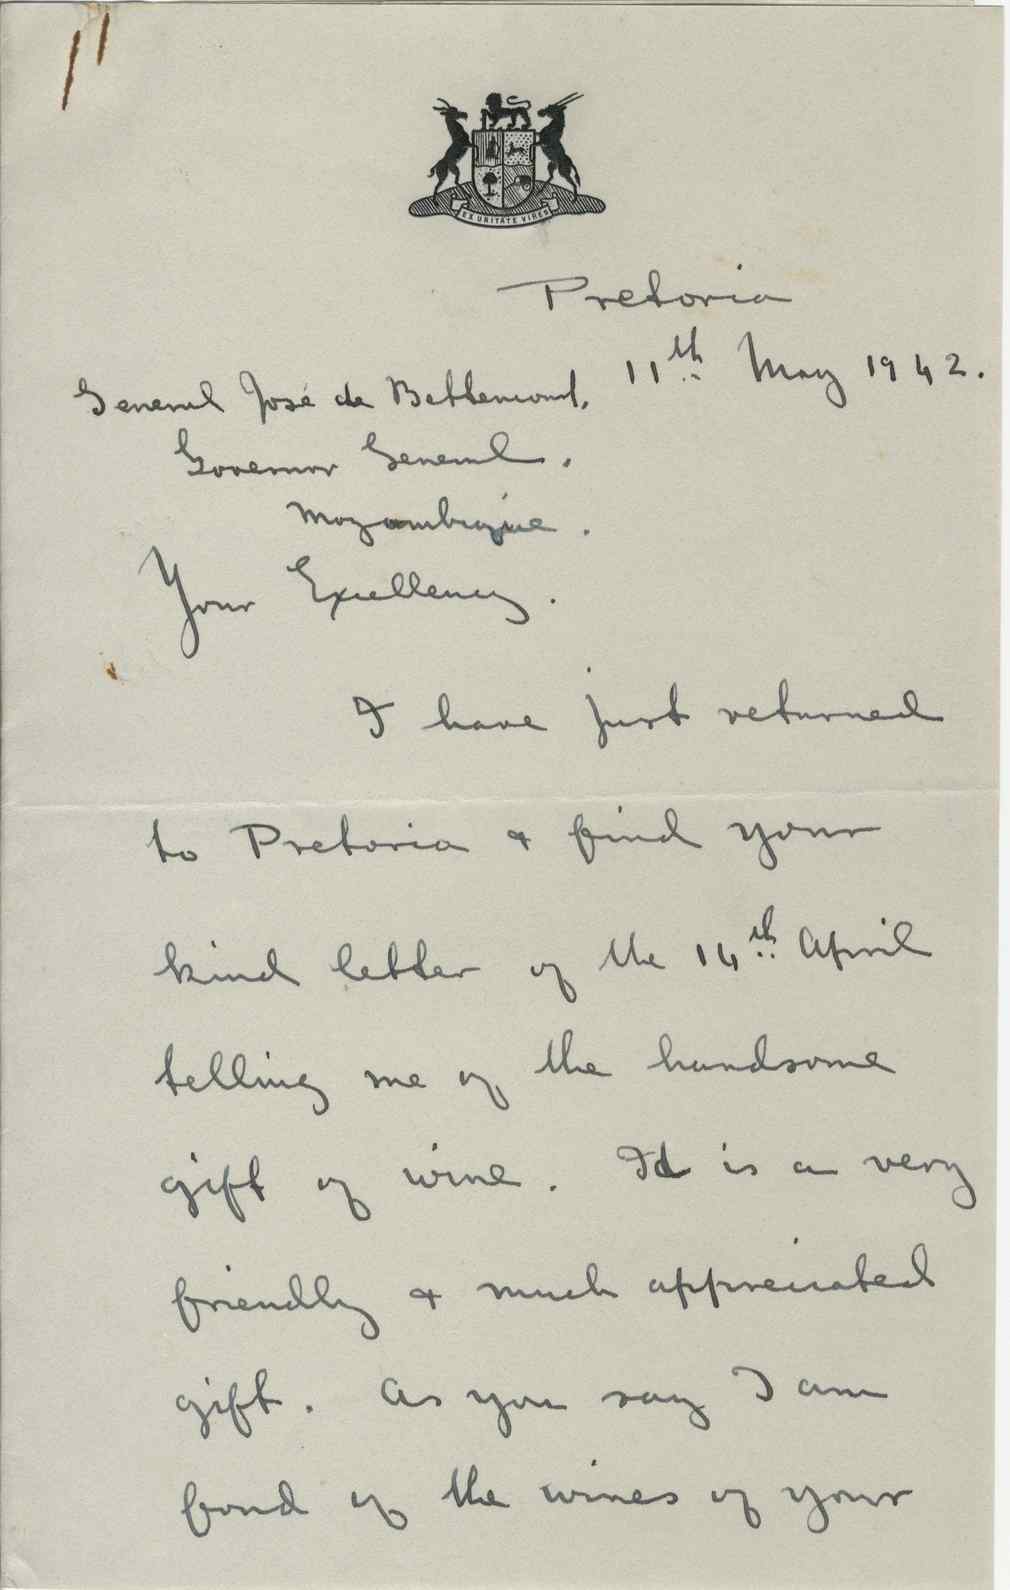 EX UNITATE VIRES
Pretoria
11th May 1942.
General José de Bettencourt,
Governor General.
Mozambique.
Your Excellency.
I have just returned
to Pretoria & find your
kind letter of the 14th April
telling me of the handsome
gift of wine. It is a very
friendly & much appreciated
gift. As you say I am
fond of the wines of your